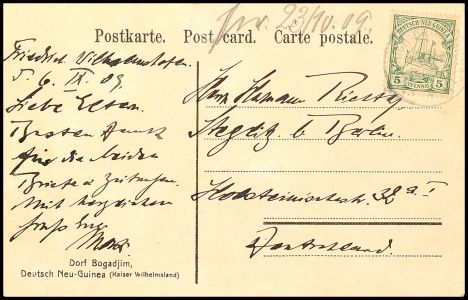 pr. 23/10. 09.
Postkarte. Post card. Carte postale.
DEUTSCH-NEU-GUINEA
5 PFENNIG 5
Friedrich Wilhelmshafen
d. 6. IX. 09.
Liebe Eltern
Besten Dank
für die beiden
Briefe u Zeitungen.
Mit herzlichem
Gruß Euer
Max
Herrn Hermann
Steglitz b. Berlin.
Holsteinischestr. 32 a I
Deutschland
Dorf Bogadjim,
Deutsch Neu-Guinea (Kaiser Wilhelmsland)